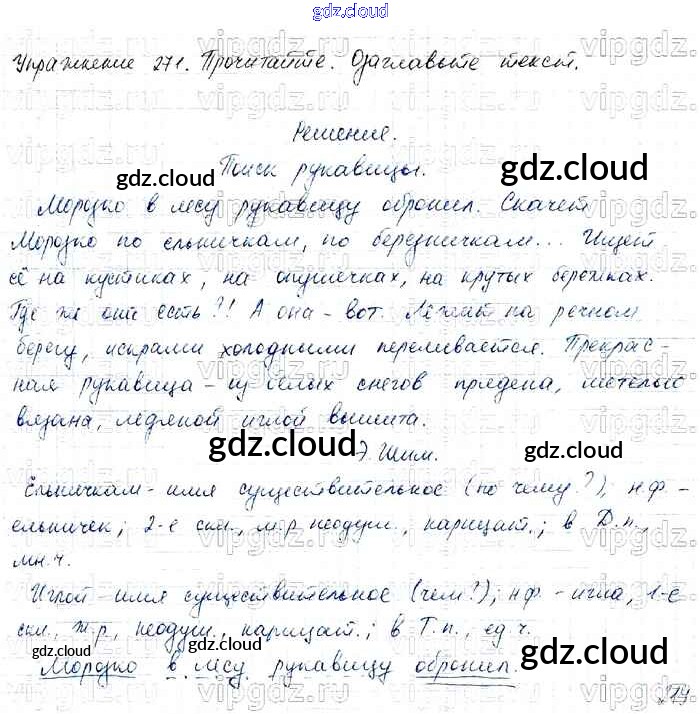 gdz.cloud
Упражнение 271. Прочитайте. Озаглавьте текст.
Решение.
Поиск рукавицы.
Морозко в лесу рукавицу обронил. Скачет
Морозко по ельничкам, по березничкам... Ищет
её на кустиках, на опушечках, на крутых бережках.
Где же она есть?!! А она - вот. Лежит на речном
берегу, искрами холодными переливается. Прекрас-
ная рукавица - из белых снегов прядена, метелью
вязана, ледяной иглой вышита.
Э. Шим.
Ельничкам - имя существительное (по чему?); н.ф. -
ельничек; 2-е скл., м.р. неодуш., нарицат.; в Д.п.,
мн.ч.
Иглой - имя существительное (чем?); н.ф. - игла, 1-е
скл., ж.р., неодуш., нарицат.; в Т.п., ед.ч.
Морозко в лесу рукавицу обронил.
gdz.cloud
gdz.cloud
gdz.cloud
gdz.cloud
gdz.cloud
gdz.cloud
gdz.cloud